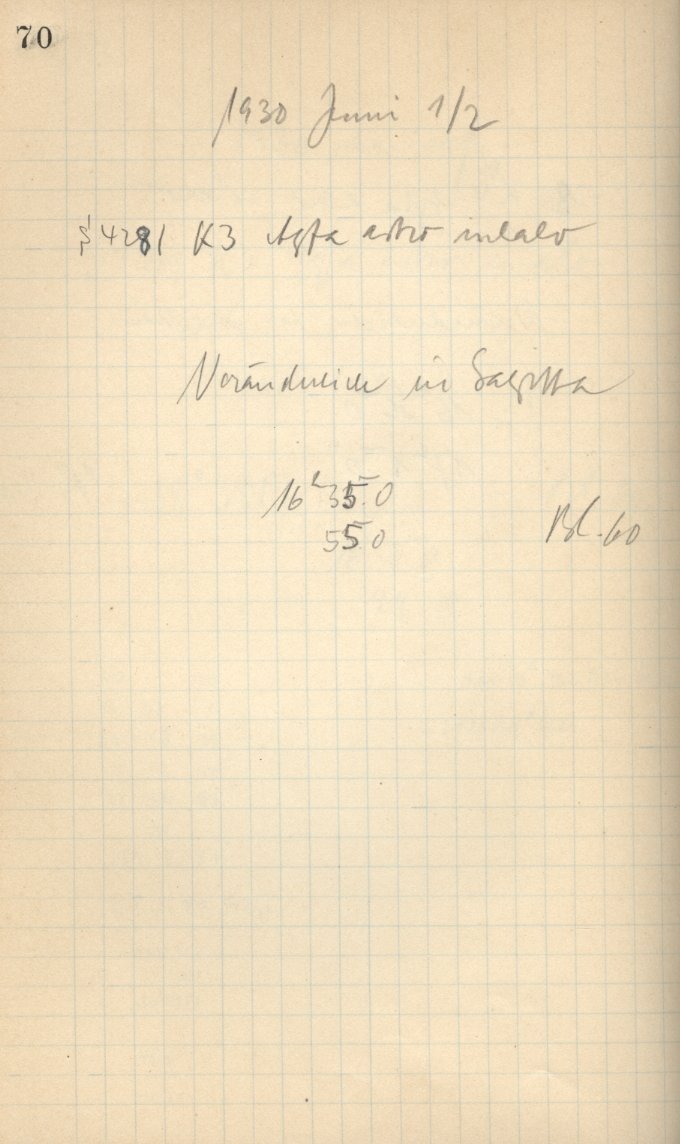 70
1930 Juni 1/2
4281 K3 Agfa astro inlalo
Veränderliche in Sagitta
16h 35.0
55 0
Bl. 60